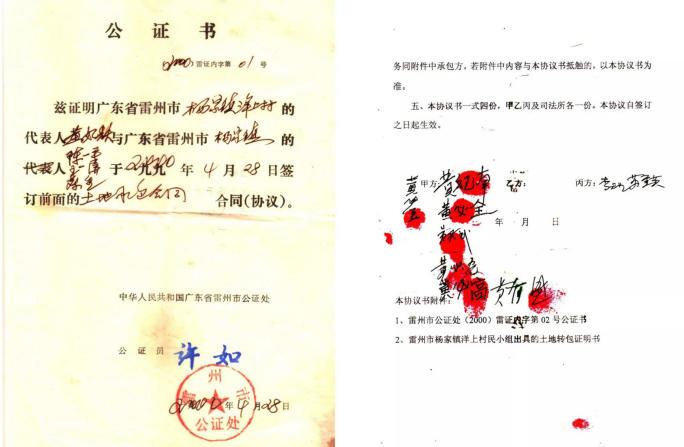 公证书
(2000)雷证内字第01号
兹证明广东省雷州市杨家镇洋上村的
代表人 与广东省雷州市杨家镇的
代表人 于 年4月28日签
订前面的土地承包合同 合同(协议)。
中华人民共和国广东省雷州市公证处
公证员 许如
州市
公证处
年4月28日
务同附件中承包方，若附件中内容与本协议书抵触的，以本协议书为
准。
五、本协议书一式四份，甲乙丙及司法所各一份。本协议自签订
之日起生效。
甲方： 黄 乙方： 丙方：
黄
年 月 日
本协议书附件：
1、雷州市公证处（2000）雷证内字第02号公证书
2、雷州市杨家镇洋上村民小组出具的土地转包证明书